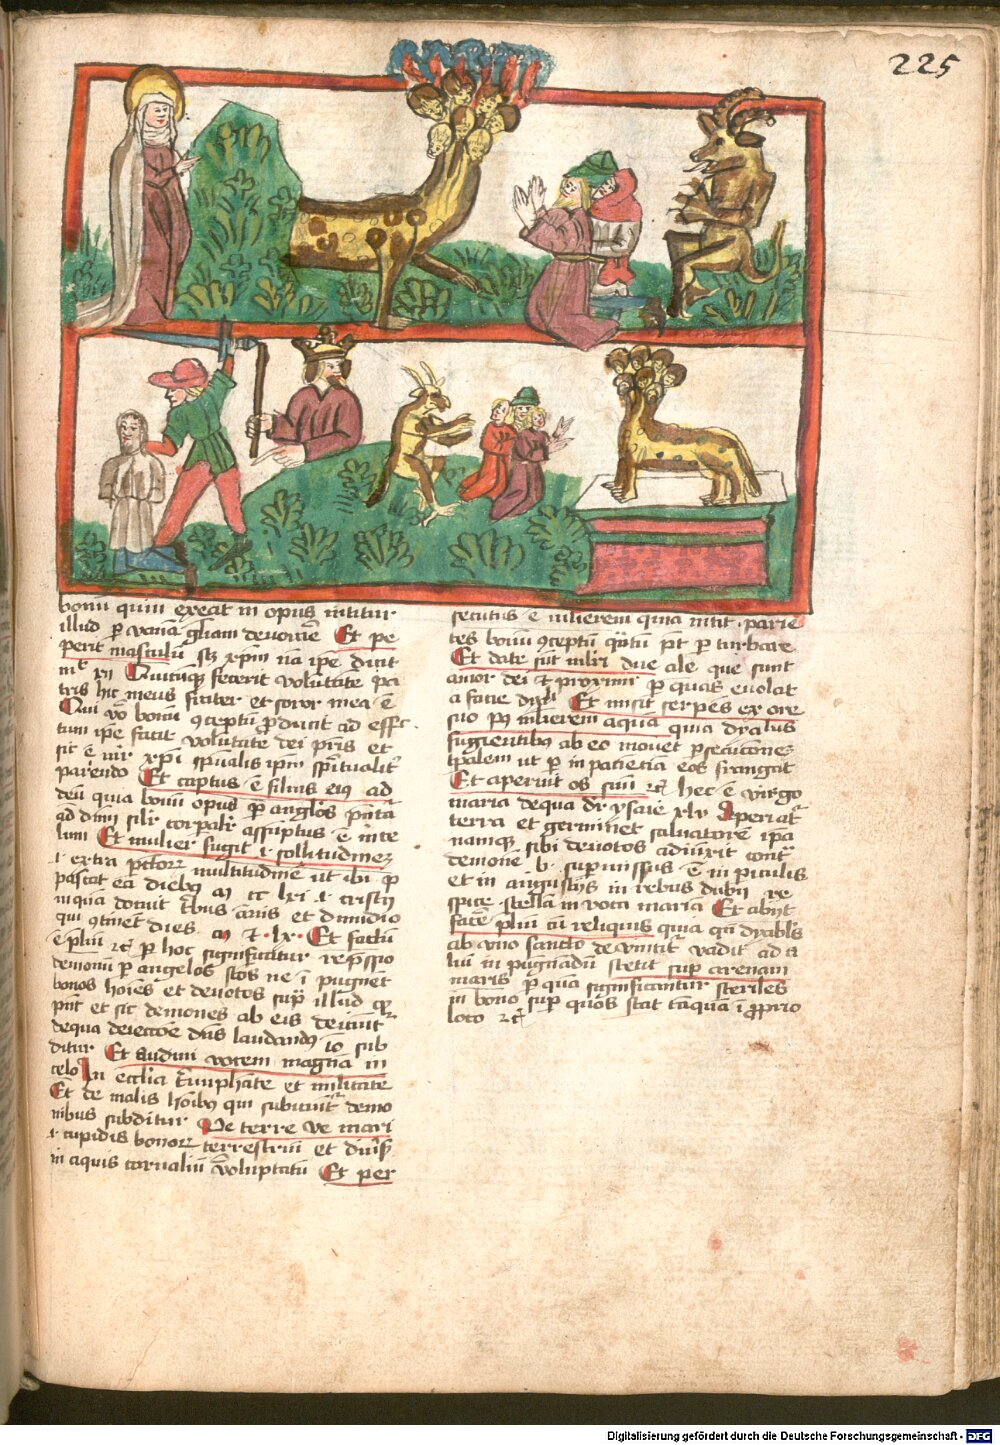 225
bonu quin exeat in opus nititur
illud p vanā gl̄iam devorare Et pe
perit masculū sc̄ xp̄m nā ip̄e dicit
mt̄ xii Quicūq̄ fecerit volūtatē pa
tris hic meus frater et soror mea ē
Qui vō bonū 9ceptū p̄ducūt ad effc̄
tum ip̄e facit volūtatē dei pr̄is et
sic ē mr̄ xp̄i sp̄ualis ip̄m sp̄ualit̄
pariendo Et raptus ē filius eiꝰ ad
deū quia bonū opus p̄ anglos p̄n̄ta
ad dn̄m silr̄ corpalr̄ assūptus ē in ce
lum Et mulier fugit ī sollitudinez
multitudinē ut ibi
pascat eā diebꝰ m cc lxi
in quā docuit t̄bus annis et dimidio
qui 9tinet dies m cc lx Et factū
ē p̄liū rc̄ p hoc significatur rep̄ssio
demonū p angelos sc̄os ne ī pugnēt
bonos hoīes et devotos sup̄ illud
et sic demones ab eis deiciūt̄
de qua deiectōe dn̄s laudandꝰ iō sub
ditur Et audivi vocem magnā in
celo In ecclīa t̄umphāte et militāte
Et de malis hoībꝰ qui subiciūt̄ demo
nibus subditur Ve terre ve mari
ī cupidis bonorꝝ terrestriū et
in aquis carnaliū voluptatū Et per
secutus ē mlierem quia nitit̄ parie
tes bonū 9ceptū p̄t p̄turbare
Et date sūt mlr̄i due ale que sunt
amor dei et proximi p quas evolat
a facie dyͣli Et misit serpēs ex ore
suo pꝰ mlierem aquā quia dyalus
fugientibꝰ ab eo movet p̄secucionē
tp̄alem ut p inpatientiā eos frangat
Et aperuit os suū rc̄ hec ē virgo
maria de qua dr̄ ysaie xlv Aperiat̄
terra et germinet salvatorē ip̄a
namqꝫ sibi devotos adiuvit cont̄
demonē in piculis
et in angustijs in rebus dubijs re
spice stellam voca maria Et abijt
facē p̄liū cū reliquis quia qn̄ dyabls̄
ab uno sancto devincit̄ vadit ad a
liū inpugnādū stetit sup̄ arenam
maris p quā significantur steriles
in bono sup̄ quos stat tāquā ī p̄prio
loco rc̄
Digitalisierung gefördert durch die Deutsche Forschungsgemeinschaft - DFG